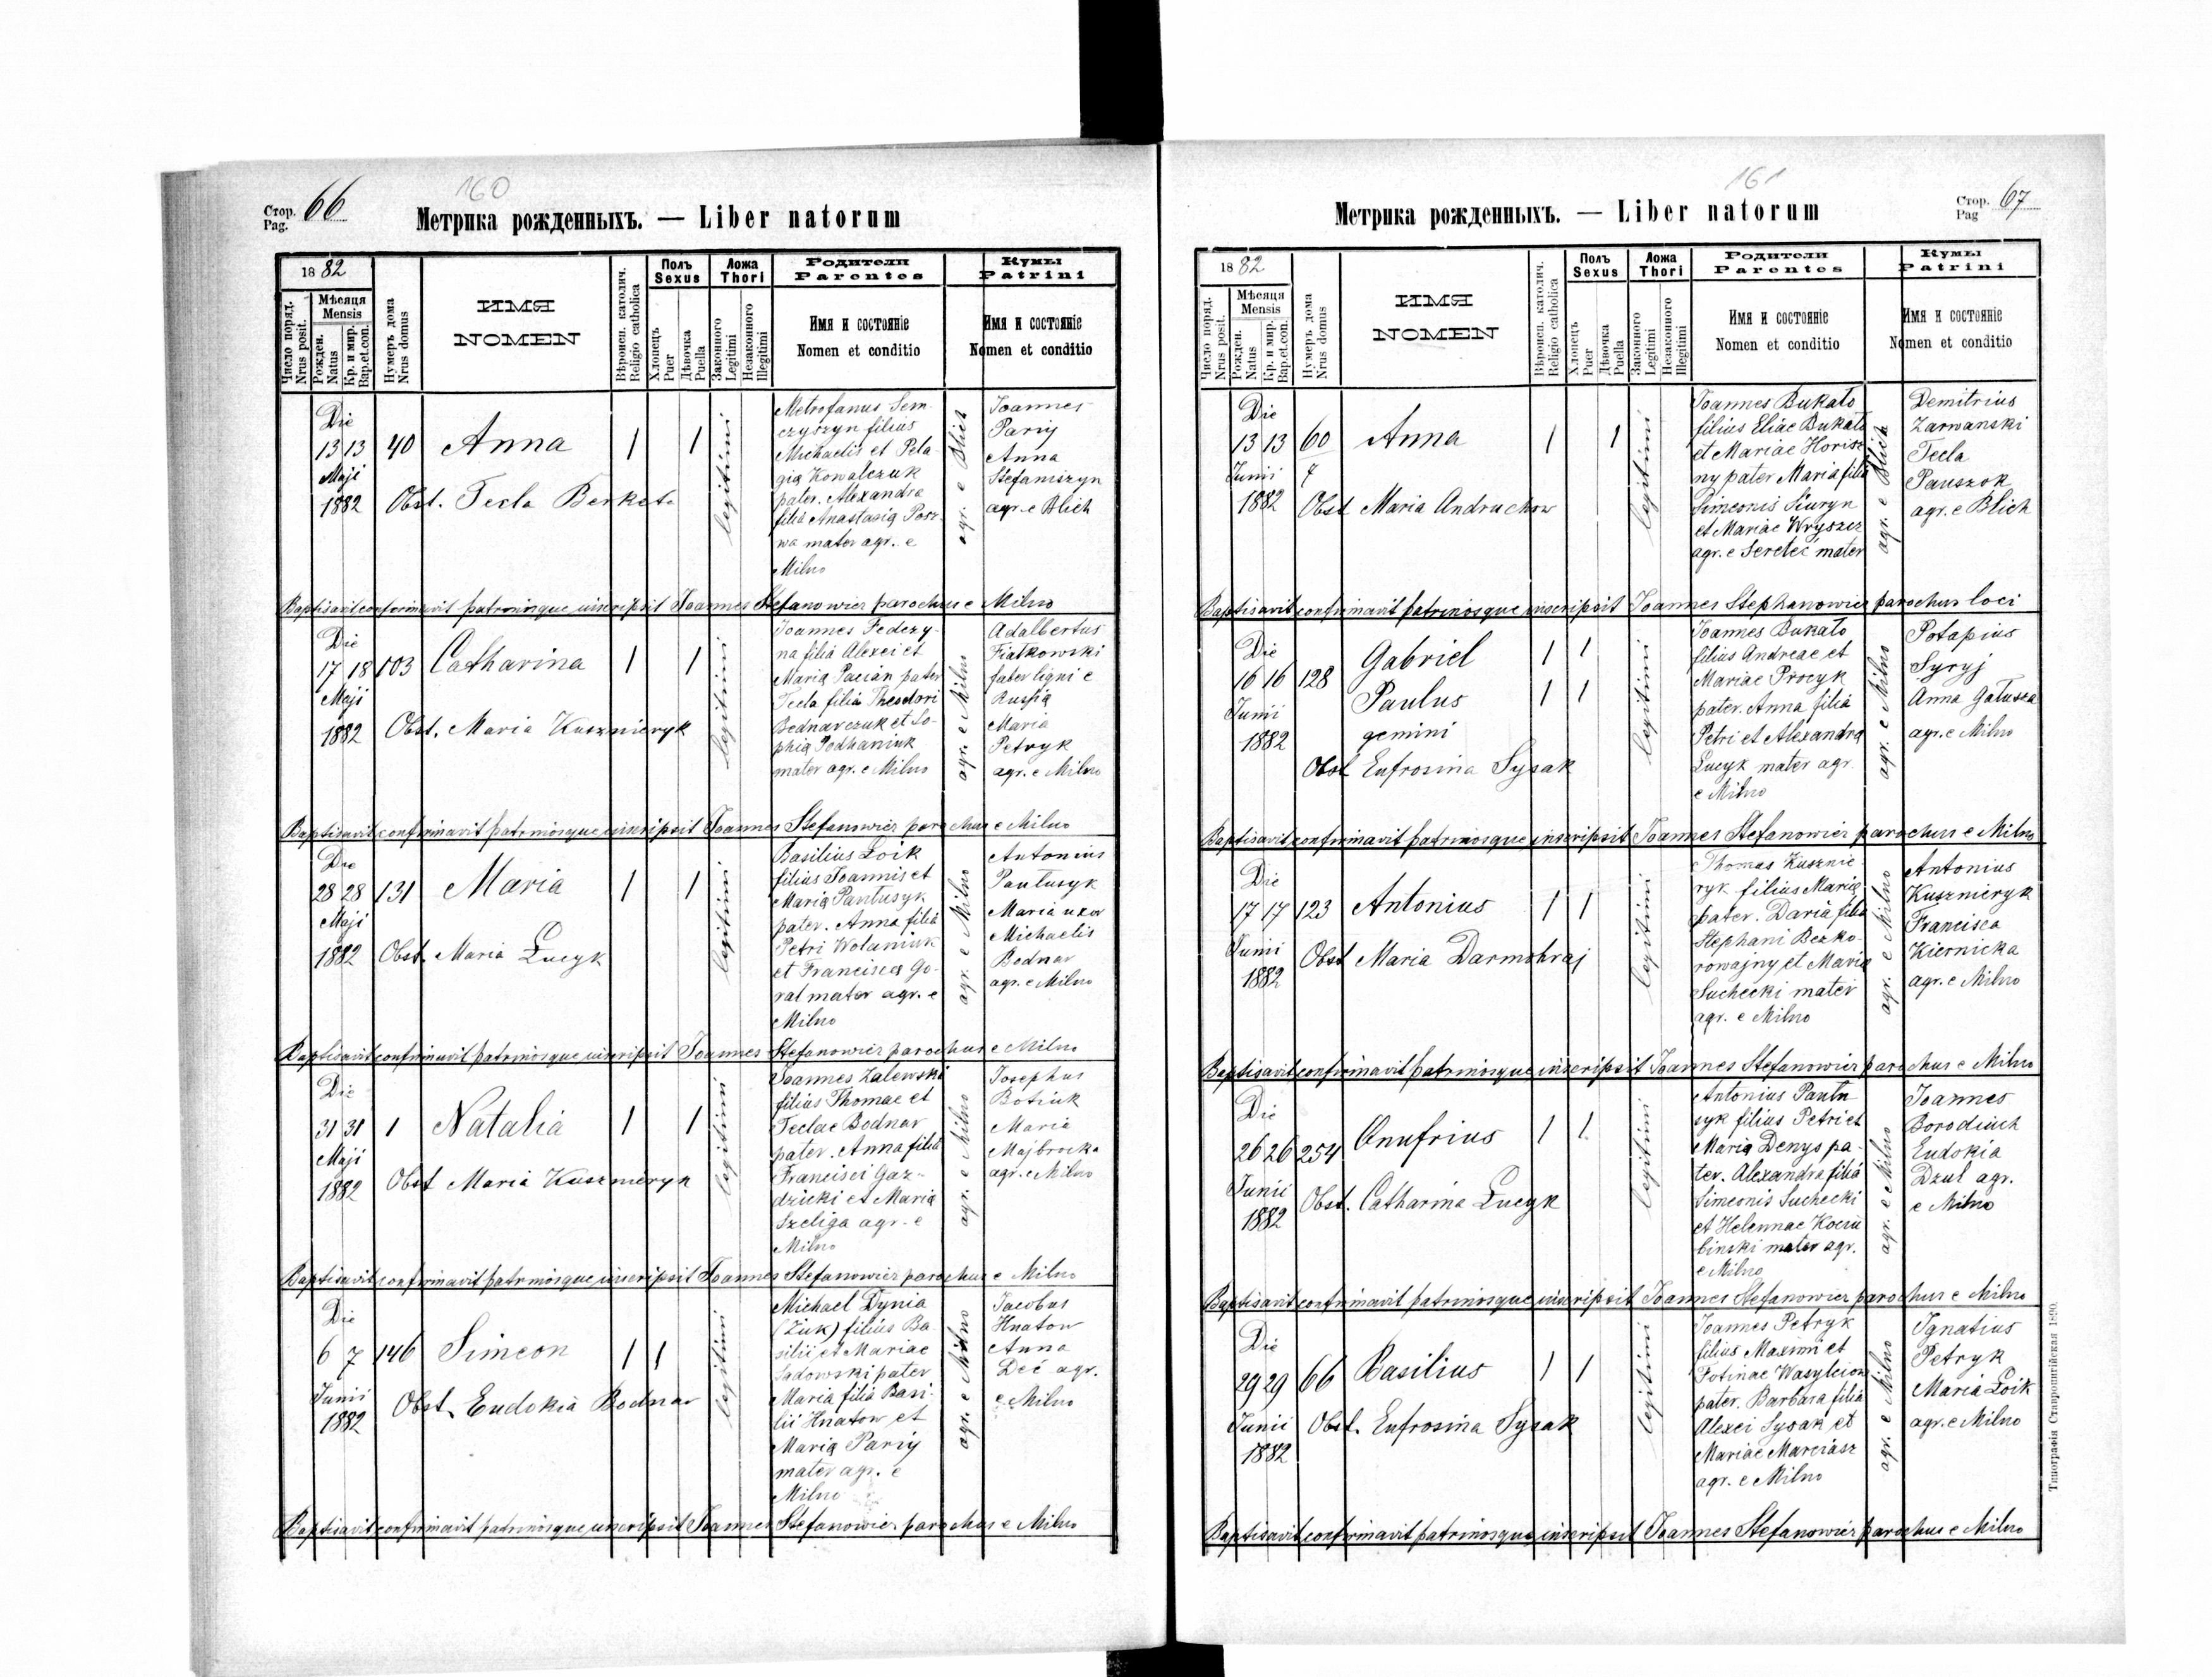 160
Стор. Pag. 66
Метрика рожденныхъ. — Liber natorum
18 82
Число поряд. Nrus posit.
Мѣсяца Mensis
Рожден. Natus
Кр. и мир. Bap.et.con.
Нумеръ дома Nrus domus
ИМЯ
NOMEN
Вѣроисп. католич. Religio catholica
Полъ Sexus
Хлопецъ Puer
Дѣвочка Puella
Ложа Thori
Законного Legitimi
Незаконного Illegitimi
Родители
Parentes
Имя и состоянiе
Nomen et conditio
Кумы
Patrini
Имя и состоянiе
Nomen et conditio
Die
13 13 40 Anna 1 1
Maji
1882 Obst. Tecla Berkata
legitimi
Metrofanus Sem-
czyszyn filius
Michaelis et Pela
gia Kowalczuk
pater. Alexandra
filia Anastasia Posz
wa mater agr. e
Milno
agr. e Blich
Joannes
Parij
Anna
Stefaniszyn
agr. e Blich
Baptisavit confirmavit patrinosque inscripsit Joannes Stefanowicz parochus e Milno
Die
17 18 103 Catharina 1 1
Maji
1882 Obst. Maria Kusznieryk
legitimi
Joannes Fedczy-
na filia Alexei et
Maria Pacian pater
Tecla filia Theodori
Bednarczuk et So-
phia Podhaniuk
mater agr. e Milno
agr. e Milno
Adalbertus
Fialkowski
faber ligni e
Russia
Maria
Petryk
agr. e Milno
Baptisavit confirmavit patrinosque inscripsit Joannes Stefanowicz parochus e Milno
Die
28 28 131 Maria 1 1
Maji
1882 Obst. Maria Łucyk
legitimi
Basilius Łoik
filius Joannis et
Maria Pantusyk
pater. Anna filia
Petri Wolaniuk
et Francisca Go-
ral mater agr. e
Milno
agr. e Milno
Antonius
Pantusyk
Maria uxor
Michaelis
Bodnar
agr. e Milno
Baptisavit confirmavit patrinosque inscripsit Joannes Stefanowicz parochus e Milno
Die
31 31 1 Natalia 1 1
Maji
1882 Obst Maria Kuszmeryk
legitimi
Joannes Zalewski
filius Thomae et
Teclae Bodnar
pater. Anna filia
Francisci Gaz-
dzicki et Maria
Szeliga agr. e
Milno
agr. e Milno
Josephus
Botiuk
Maria
Majbrocka
agr. e Milno
Baptisavit confirmavit patrinosque inscripsit Joannes Stefanowicz parochus e Milno
Die
6 7 146 Simeon 1 1
Junii
1882 Obst. Eudokia Bodnar
legitimi
Michael Dynia
(Żuk) filius Ba
silii et Mariae
Sadowski pater
Maria filia Basi-
lii Hnatow et
Maria Pariy
mater agr. e
Milno
agr. e Milno
Jacobus
Hnatow
Anna
Deć agr.
e Milno
Baptisavit confirmavit patrinosque inscripsit Joannes Stefanowicz parochus e Milno
161
Стор. Pag 67
Метрика рожденныхъ. — Liber natorum
18 82
Число поряд. Nrus posit.
Мѣсяца Mensis
Рожден. Natus
Кр. и мир. Bap.et.con.
Нумеръ дома Nrus domus
ИМЯ
NOMEN
Вѣроисп. католич. Religio catholica
Полъ Sexus
Хлопецъ Puer
Дѣвочка Puella
Ложа Thori
Законного Legitimi
Незаконного Illegitimi
Родители
Parentes
Имя и состоянiе
Nomen et conditio
Кумы
Patrini
Имя и состоянiе
Nomen et conditio
Die
13 13 60 Anna 1 1
Junii 7
1882 Obst Maria Andruchow
legitimi
Joannes Bukato
filius Eliae Bukato
et Mariae Horisz
ny pater Maria filia
Simeonis Siuryn
et Mariae Kryszcz
agr. e Sereteć mater
agr. e Blich
Demitrius
Zarwanski
Tecla
Pauszok
agr. e Blich
Baptisavit confirmavit patrinosque inscripsit Joannes Stephanowicz parochus loci
Die
16 16 128 Gabriel 1 1
Junii Paulus 1 1
1882 gemini
Obst Eufrosina Sysak
legitimi
Joannes Bukato
filius Andreae et
Mariae Procyk
pater. Anna filia
Petri et Alexandra
Łucyk mater agr.
e Milno
agr. e Milno
Potapius
Syryj
Anna Gałusza
agr. e Milno
Baptisavit confirmavit patrinosque inscripsit Joannes Stefanowicz parochus e Milno
Die
17 17 123 Antonius 1 1
Junii
1882 Obst Maria Darmohraj
legitimi
Thomas Kusznie-
ryk filius Maria
pater. Daria filia
Stephani Bezko-
rowajny et Maria
Suchecki mater
agr. e Milno
agr. e Milno
Antonius
Kuszmeryk
Francisca
Kiernicka
agr. e Milno
Baptisavit confirmavit patrinosque inscripsit Joannes Stefanowicz parochus e Milno
Die
26 26 254 Onufrius 1 1
Junii
1882 Obst. Catharina Łucyk
legitimi
Antonius Pantu
syk filius Petri et
Maria Denys pa-
ter. Alexandra filia
Simeonis Suchecki
et Helennae Kociu
binski mater agr.
e Milno
agr. e Milno
Joannes
Borodiuch
Eudokia
Dzul agr.
e Milno
Baptisavit confirmavit patrinosque inscripsit Joannes Stefanowicz parochus e Milno
Die
29 29 66 Basilius 1 1
Junii
1882 Obst. Eufrosina Sysak
legitimi
Joannes Petryk
filius Maximi et
Fotinae Wasylciow
pater. Barbara filia
Alexei Sysak et
Mariae Marciasz
agr. e Milno
agr. e Milno
Ignatius
Petryk
Maria Łoik
agr. e Milno
Baptisavit confirmavit patrinosque inscripsit Joannes Stefanowicz parochus e Milno
Типографiя Ставропигiйская 1890.